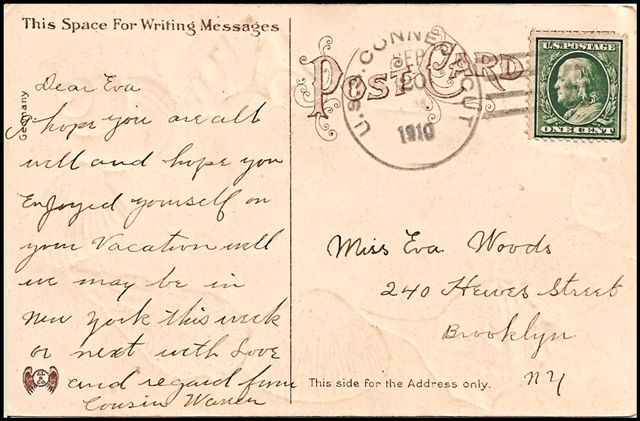 This Space For Writing Messages
POST CARD
U.S.S. CONNECTICUT
SEP
20
1910
U.S. POSTAGE
ONE CENT
Germany
Dear Eva
I hope you are all
well and hope you
Enjoyed yourself on
your Vacation well
we may be in
New York this week
or next with Love
and regard from
Cousin Warren
Miss Eva Woods
240 Hewes Street
Brooklyn
NY
This side for the Address only.